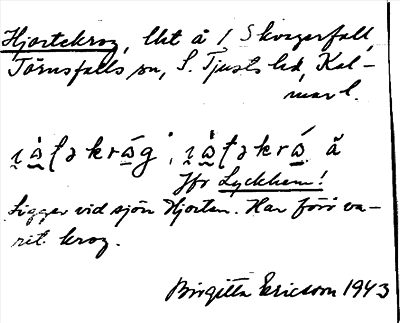 Hjortekrog, lht å / Skvagerfall,
Törnsfalls sn, S. Tjusts hd, Kal-
mar l.
Jfr Lyckhem!
Ligger vid sjön Hjorten. Har förr va-
rit krog.
Birgitta Ericsson 1943